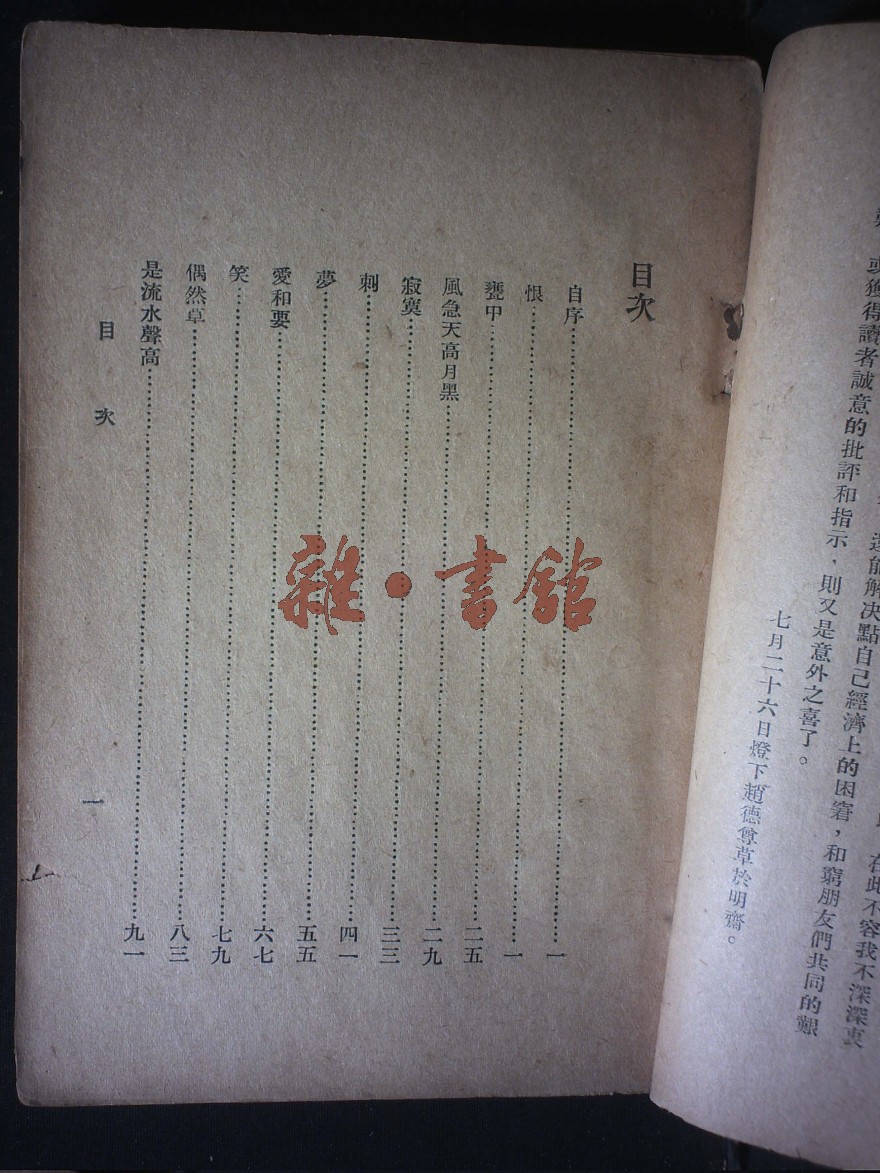 或獲得讀者誠意的批評和指示，則又是意外之喜了。
還能解決點自己經濟上的困窘，和窮朋友們共同的艱
在此不容我不深深衷
七月二十六日燈下趙德尊草於明齋。
目次
自序…………一
恨…………一
甕甲…………二五
風急天高月黑…………二九
寂寞…………三三
刺…………四一
夢…………五五
愛和要…………六七
笑…………七九
偶然草…………八三
是流水聲高…………九一
目次
一
雜·書館